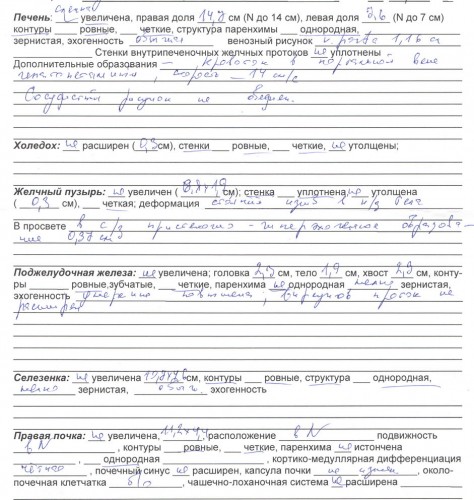 Печень: увеличена, правая доля 14,9 см (N до 14 см), левая доля 5,6 (N до 7 см)
контуры ___ ровные, ___ четкие, структура паренхимы ___ однородная,
зернистая, эхогенность обычная венозный рисунок
Стенки внутрипеченочных желчных протоков не уплотнены
Дополнительные образования – кровоток в портальной вене
14 см/с
Сосудистый рисунок не
Холедох: не расширен ( 0,3 см), стенки ___ ровные, ___ четкие, не утолщены;
Желчный пузырь: не увеличен ( см); стенка ___ уплотнена, не утолщена
( 0,3 см), ___ четкая; деформация
В просвете в с/з пристеночно - гиперэхогенное образова-
ние 0,37 см
Поджелудочная железа: не увеличена; головка 2,3 см, тело 1,9 см, хвост 2,3 см, конту-
ры ___ ровные,зубчатые, ___ четкие, паренхима не однородная зернистая,
эхогенность повышена, проток не
расширен
Селезенка: не увеличена см, контуры ___ ровные, структура ___ однородная,
мелко зернистая, обычн эхогенность
Правая почка: не увеличена, расположение в N подвижность
в N , контуры ___ ровные, ___ четкие, паренхима не истончена
, ___ однородная , кортико-медулярная дифференциация
четкая , почечный синус не расширен, капсула почки не около-
почечная клетчатка б/о , чашечно-лоханочная система не расширена